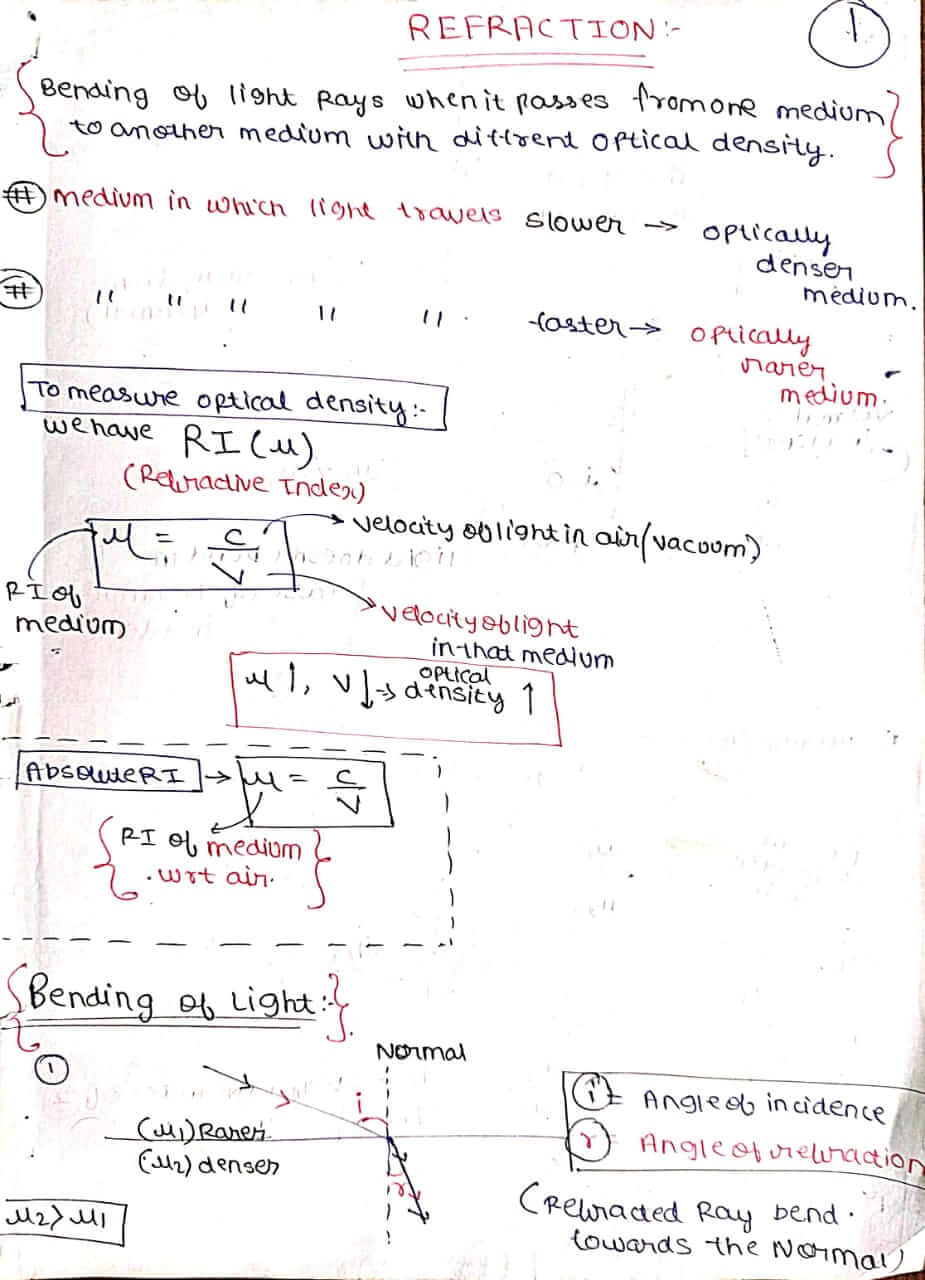 REFRACTION :-
1
Bending of light Rays when it passes from one medium
to another medium with different optical density.
# medium in which light travels slower → optically
denser
medium.
# " " " " " . faster → optically
rarer
medium.
To measure optical density :-
we have RI (μ)
(Refractive Index)
μ = c/v
velocity of light in air/(vacoum)
RI of
medium
velocity of light
in that medium
μ ↑, v ↓ → optical
density ↑
Absolute RI → μ = c/v
RI of medium
. wrt air.
Bending of Light :-
1
Normal
i
(μ1) Rarer.
(μ2) denser
r
μ2 > μ1
i = Angle of incidence
r = Angle of refraction
(Refracted Ray bend .
towards the Normal)